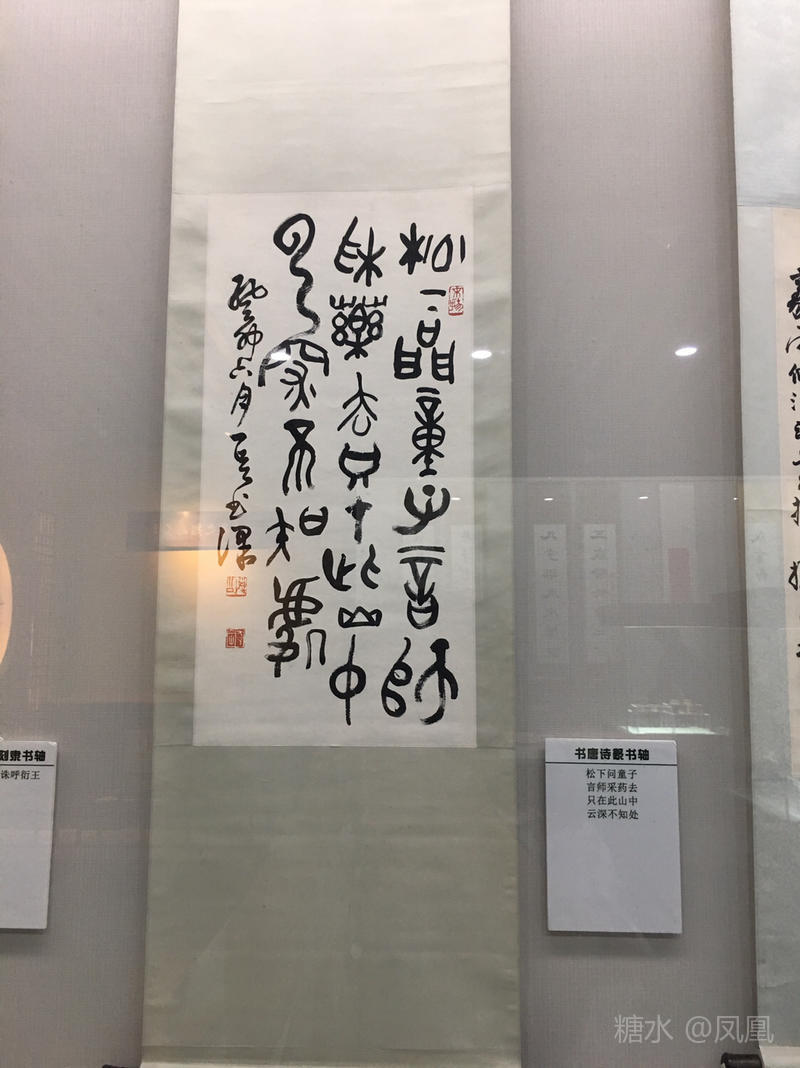 松下問童子言師
采藥去只在此山中
云深不知處
癸卯六月
隶书轴
诛呼衍王
书唐诗篆书轴
松下问童子
言师采药去
只在此山中
云深不知处
糖水 @凤凰